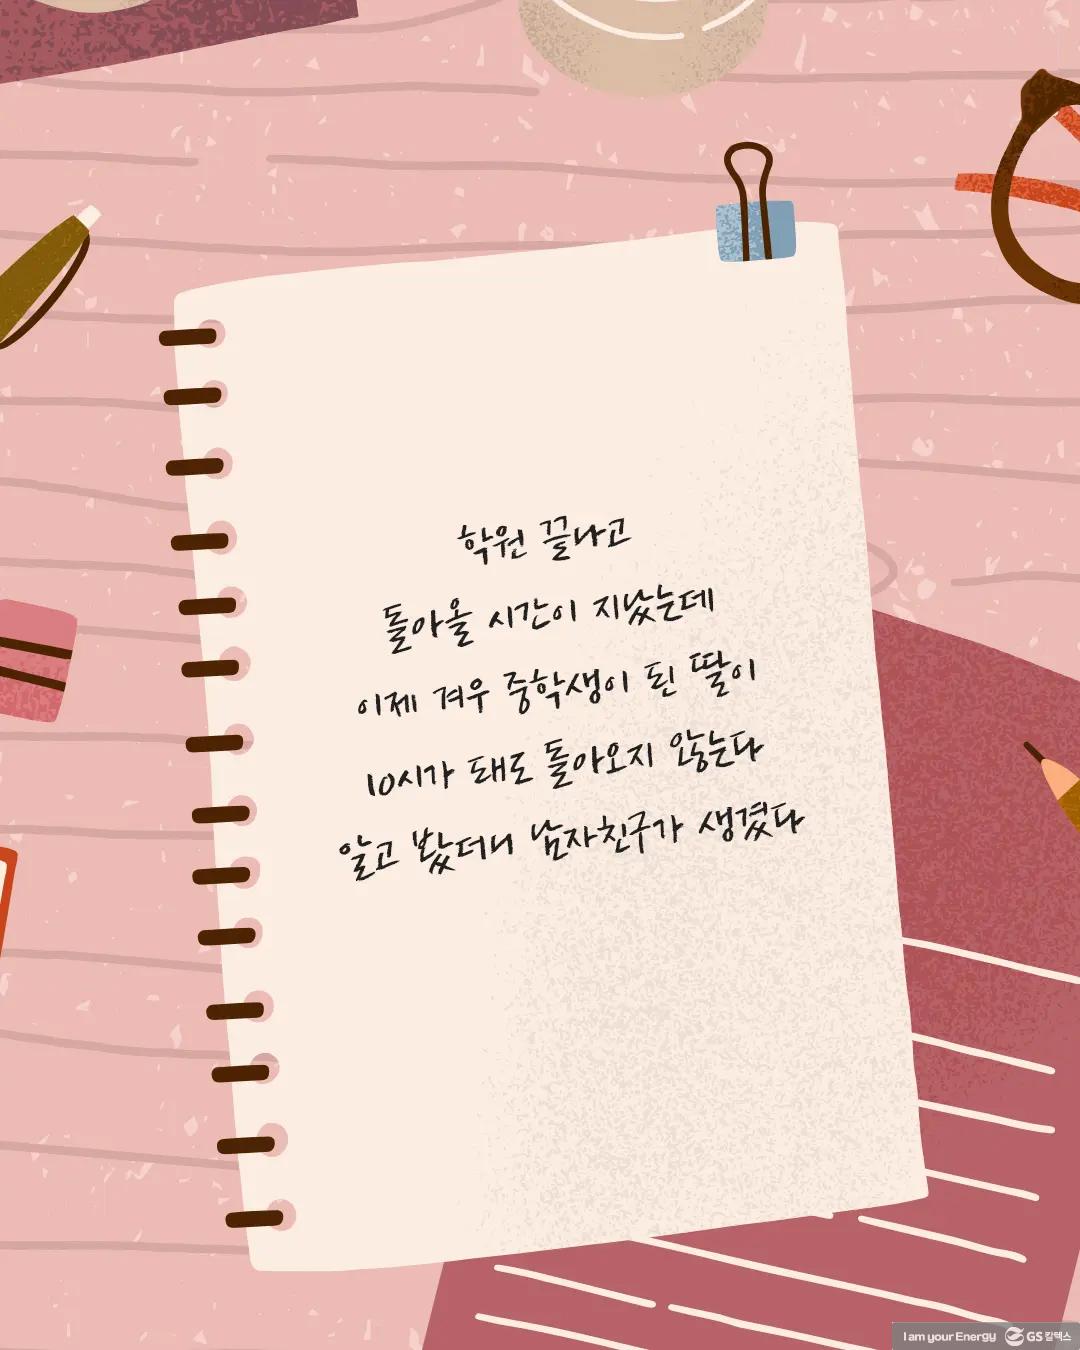 학원 끝나고
돌아올 시간이 지났는데
이제 겨우 중학생이 된 딸이
10시가 돼도 돌아오지 않는다
알고 봤더니 남자친구가 생겼다
I am your Energy GS칼텍스